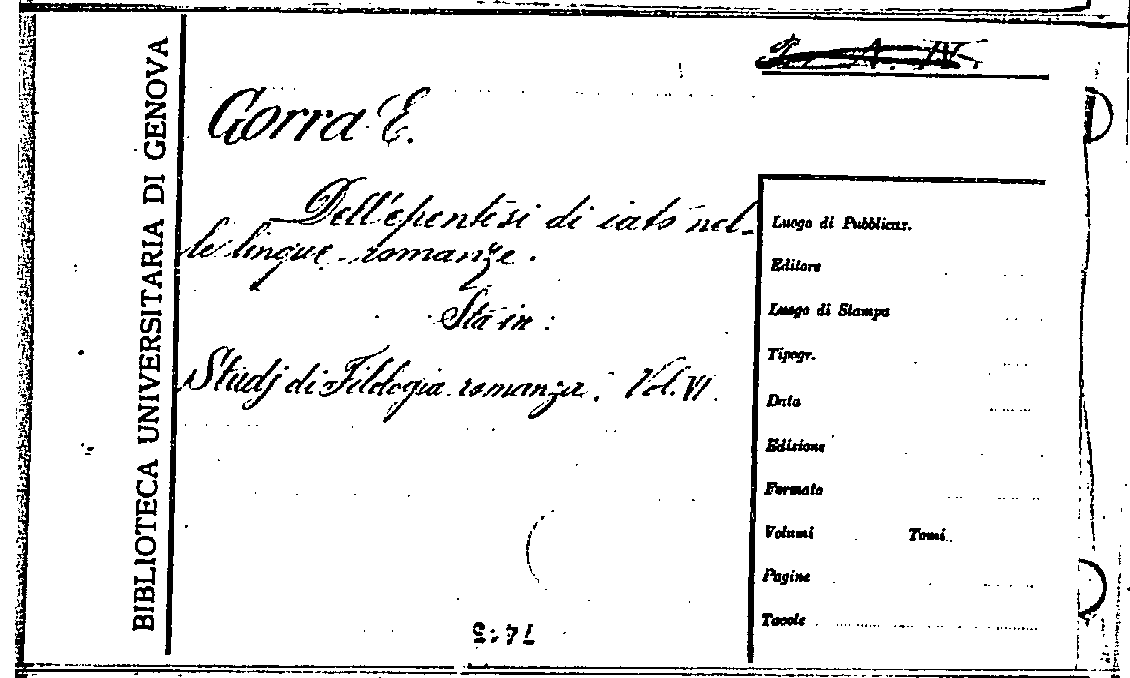 BIBLIOTECA UNIVERSITARIA DI GENOVA
Gorra E.
Dell'epentesi di iato nel-
le lingue romanze.
Sta in:
Studj di Filologia romanza. Vol. VI.
Luogo di Pubblicaz.
Editore
Luogo di Stampa
Tipogr.
Data
Edizione
Formato
Volumi Tomi
Pagine
Tavole